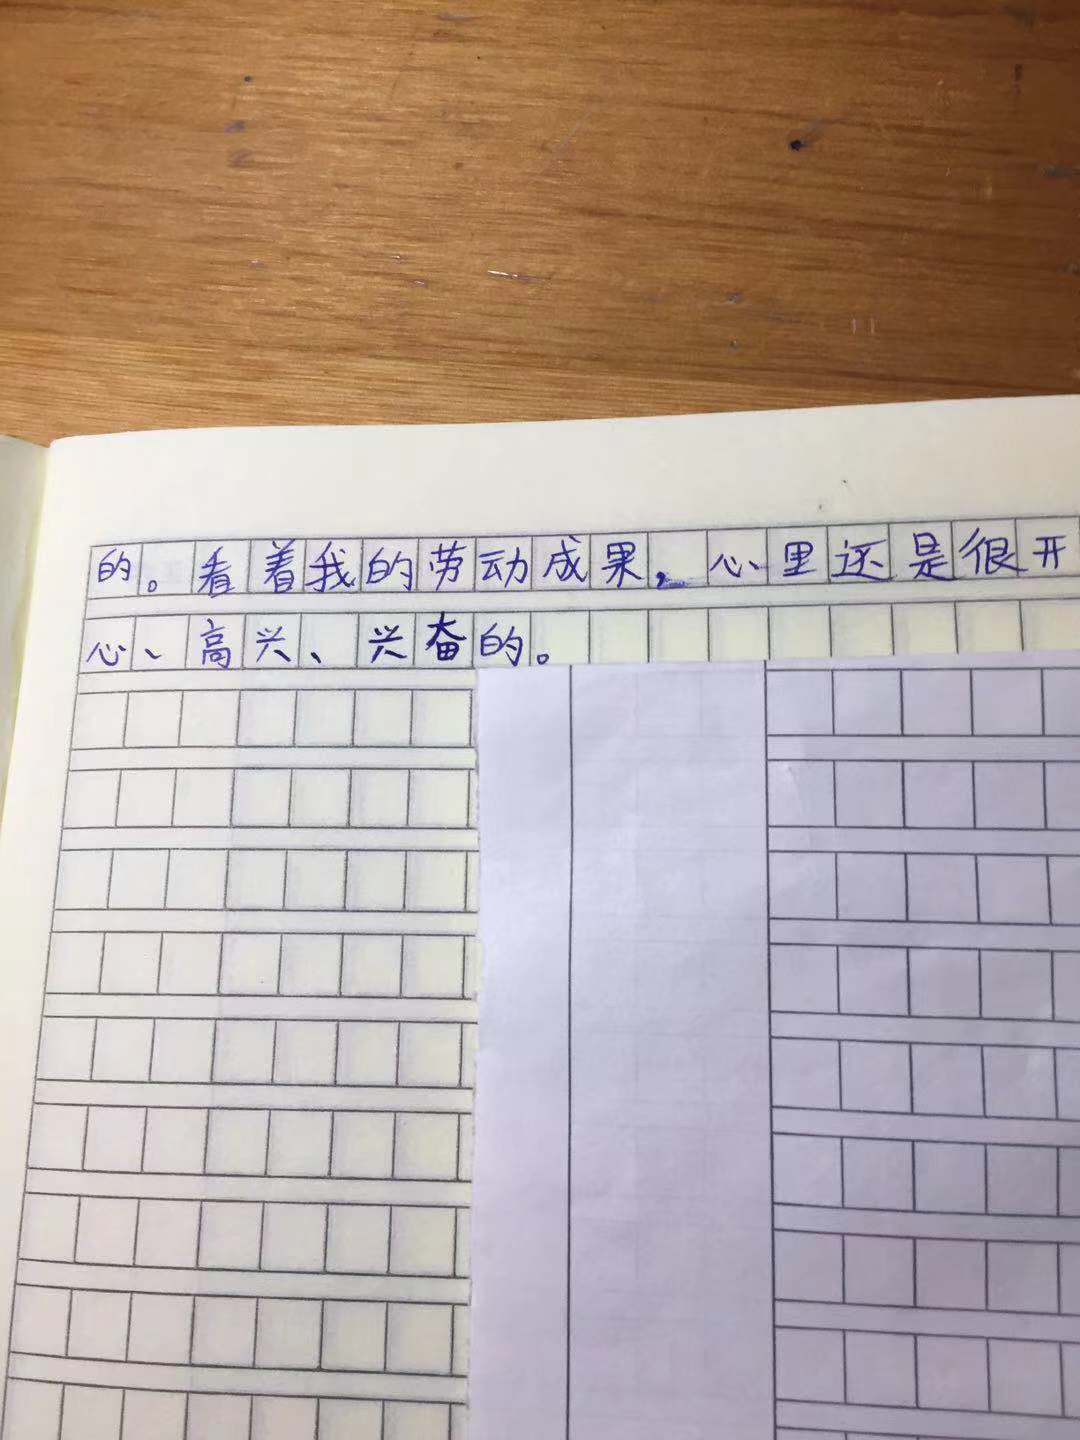 的。看着我的劳动成果，心里还是很开
心、高兴、兴奋的。